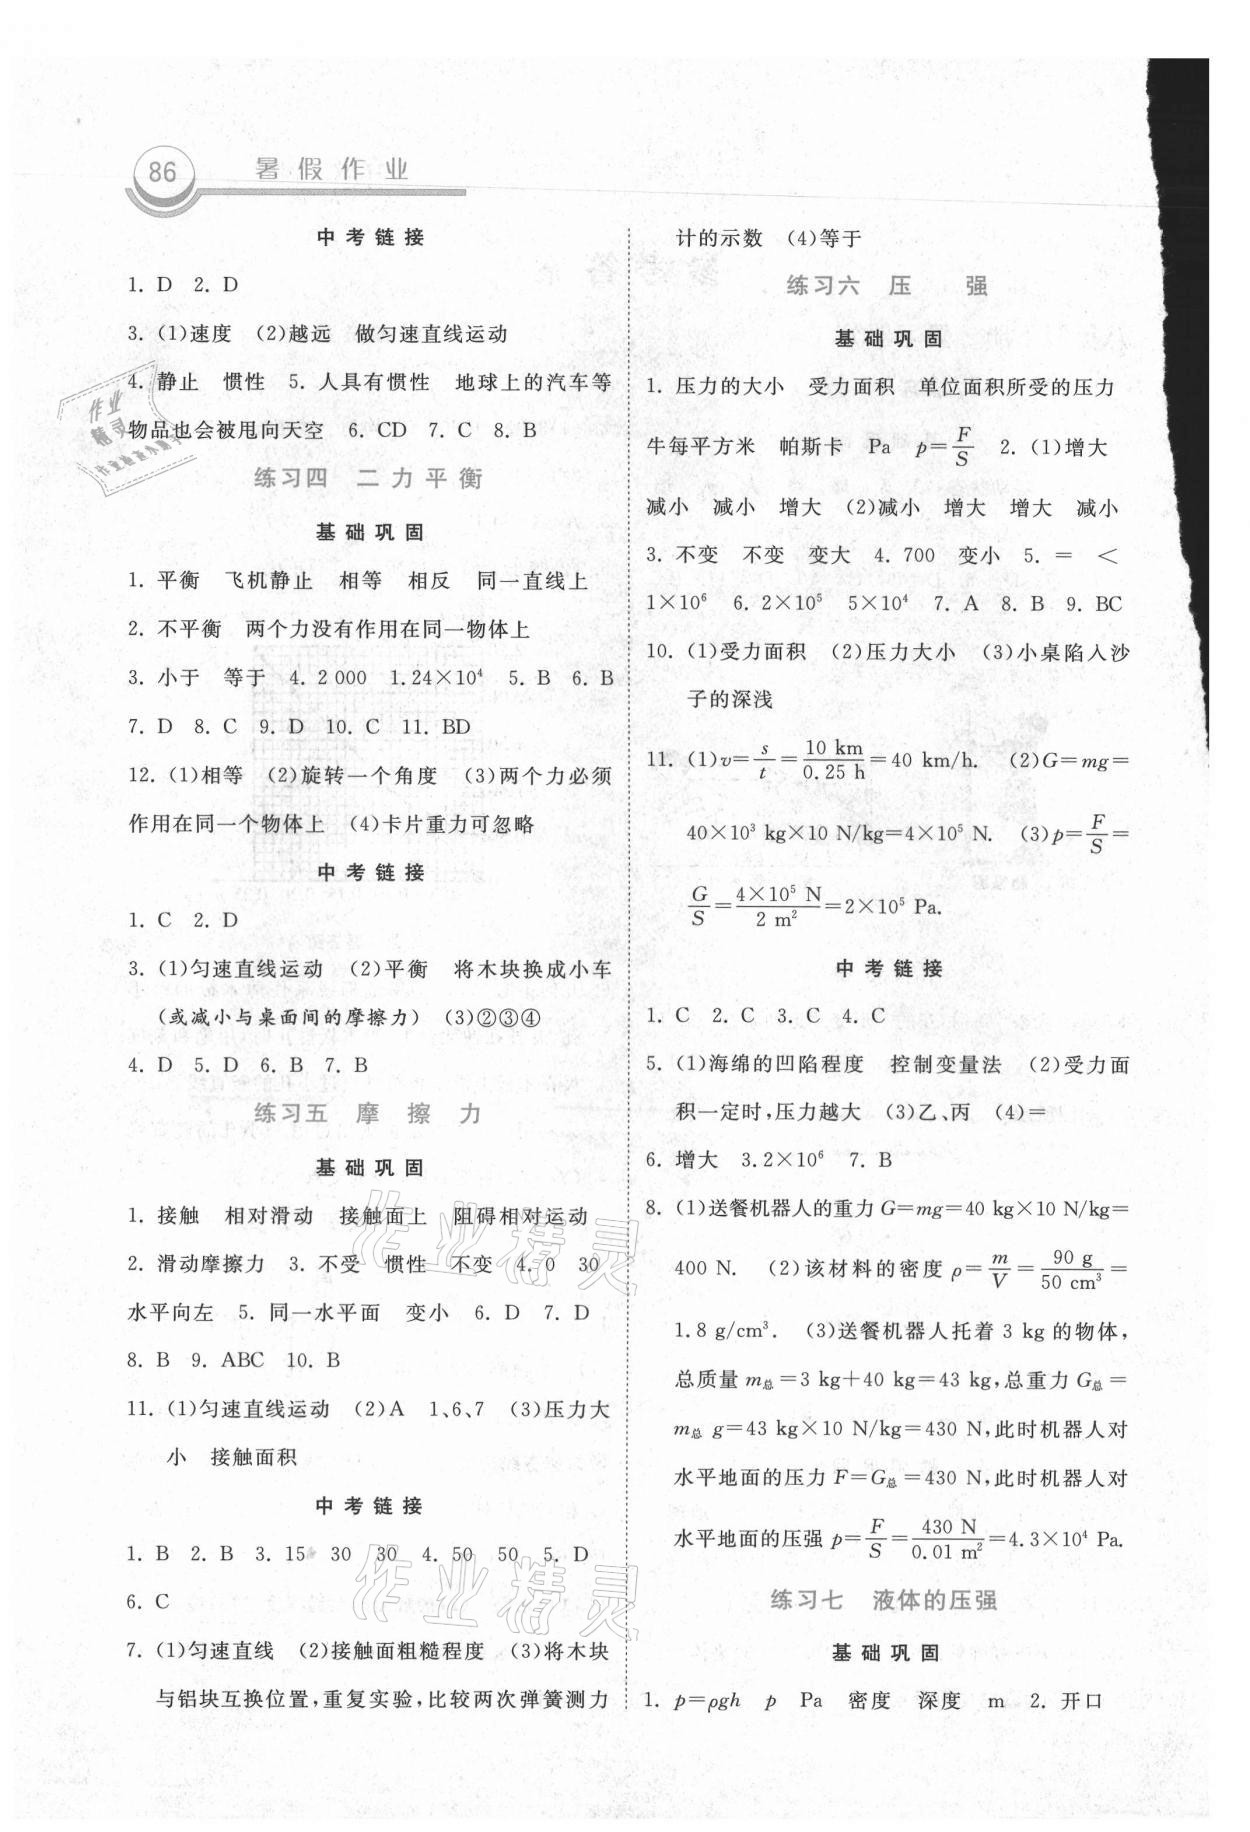 86 暑假作业
中考链接
1. D 2. D
3. (1)速度 (2)越远 做匀速直线运动
4. 静止 惯性 5. 人具有惯性 地球上的汽车等
物品也会被甩向天空 6. CD 7. C 8. B
练习四 二力平衡
基础巩固
1. 平衡 飞机静止 相等 相反 同一直线上
2. 不平衡 两个力没有作用在同一物体上
3. 小于 等于 4. 2 000 1.24×10⁴ 5. B 6. B
7. D 8. C 9. D 10. C 11. BD
12. (1)相等 (2)旋转一个角度 (3)两个力必须
作用在同一个物体上 (4)卡片重力可忽略
中考链接
1. C 2. D
3. (1)匀速直线运动 (2)平衡 将木块换成小车
(或减小与桌面间的摩擦力) (3)②③④
4. D 5. D 6. B 7. B
练习五 摩擦力
基础巩固
1. 接触 相对滑动 接触面上 阻碍相对运动
2. 滑动摩擦力 3. 不受 惯性 不变 4. 0 30
水平向左 5. 同一水平面 变小 6. D 7. D
8. B 9. ABC 10. B
11. (1)匀速直线运动 (2)A 1、6、7 (3)压力大
小 接触面积
中考链接
1. B 2. B 3. 15 30 30 4. 50 50 5. D
6. C
7. (1)匀速直线 (2)接触面粗糙程度 (3)将木块
与铝块互换位置,重复实验,比较两次弹簧测力
计的示数 (4)等于
练习六 压 强
基础巩固
1. 压力的大小 受力面积 单位面积所受的压力
牛每平方米 帕斯卡 Pa p=F/S 2. (1)增大
减小 减小 增大 (2)减小 增大 增大 减小
3. 不变 不变 变大 4. 700 变小 5. = <
1×10⁶ 6. 2×10⁵ 5×10⁴ 7. A 8. B 9. BC
10. (1)受力面积 (2)压力大小 (3)小桌陷入沙
子的深浅
11. (1)v=s/t=10 km/0.25 h=40 km/h. (2)G=mg=
40×10³ kg×10 N/kg=4×10⁵ N. (3)p=F/S=
G/S=4×10⁵ N/2 m²=2×10⁵ Pa.
中考链接
1. C 2. C 3. C 4. C
5. (1)海绵的凹陷程度 控制变量法 (2)受力面
积一定时,压力越大 (3)乙、丙 (4)=
6. 增大 3.2×10⁶ 7. B
8. (1)送餐机器人的重力G=mg=40 kg×10 N/kg=
400 N. (2)该材料的密度ρ=m/V=90 g/50 cm³=
1.8 g/cm³. (3)送餐机器人托着 3 kg 的物体,
总质量 m总=3 kg+40 kg=43 kg,总重力G总=
m总 g=43 kg×10 N/kg=430 N,此时机器人对
水平地面的压力F=G总=430 N,此时机器人对
水平地面的压强 p=F/S=430 N/0.01 m²=4.3×10⁴ Pa.
练习七 液体的压强
基础巩固
1. p=ρgh p Pa 密度 深度 m 2. 开口
作业精灵
作业精灵
作业
精灵